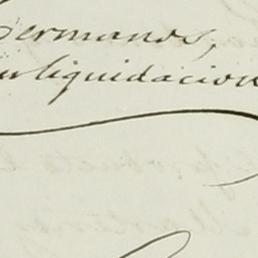 Hermanos,
su liquidacion